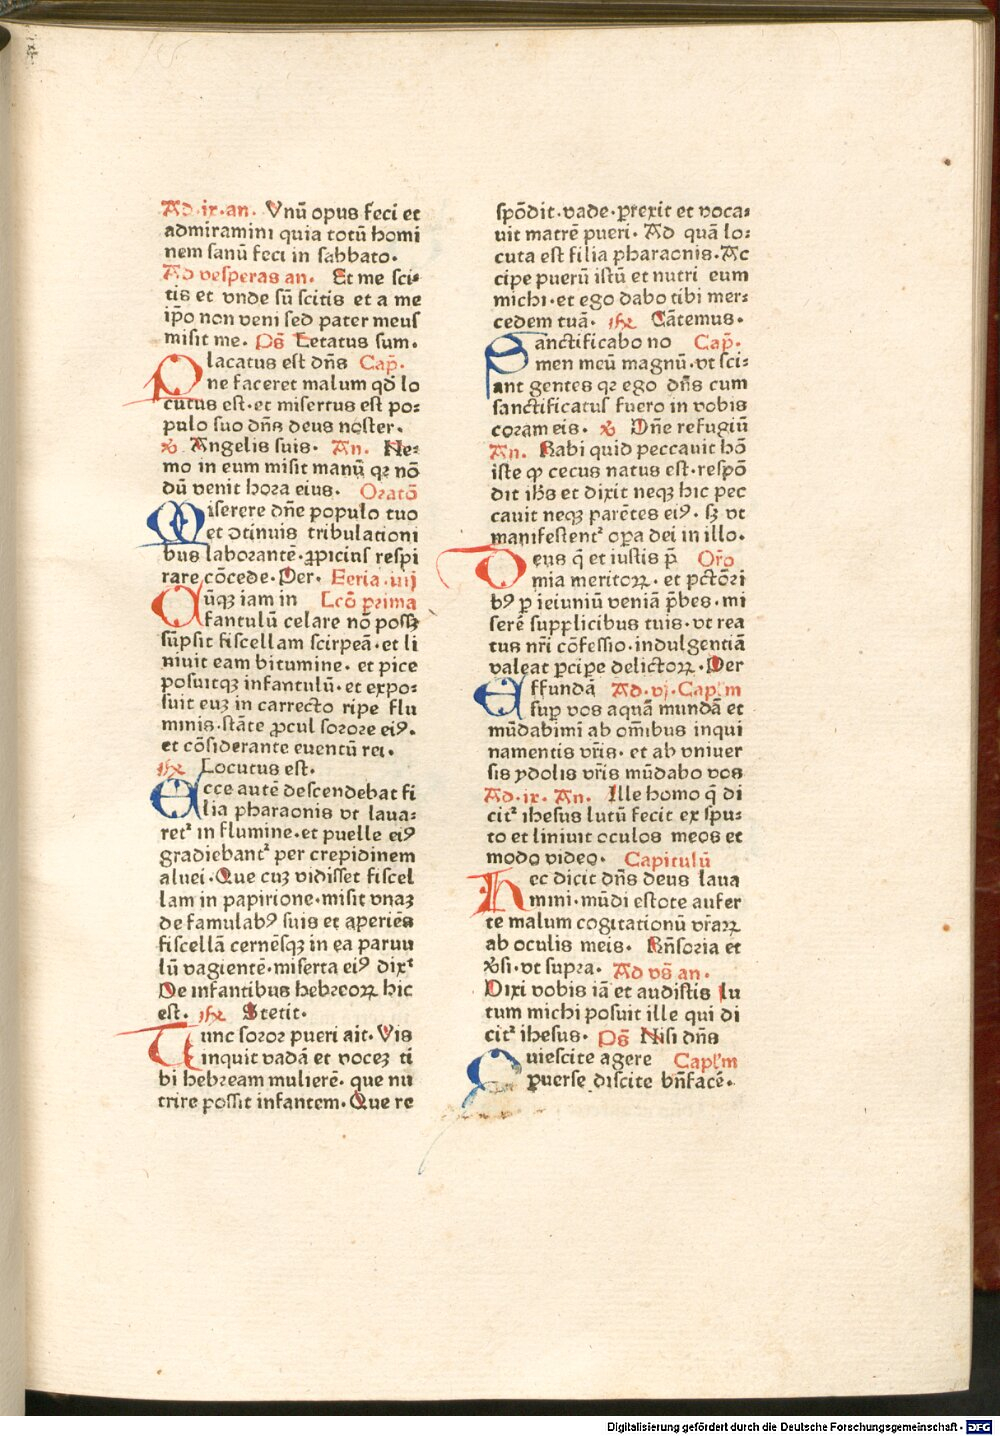 Ad·ix·an. Vnū opus feci et
admiramini quia totū homi
nem sanū feci in sabbato.
Ad vesperas an. Et me sci-
tis et vnde sū scitis et a me
ip̄o non veni sed pater meus
misit me. Ps̄ Letatus sum.
Placatus est dn̄s Cap̄.
ne faceret malum qd̄ lo
cutus est·et misertus est po-
pulo suo dn̄s deus noster.
℣ Angelis suis. An. Ne-
mo in eum misit manū qꝛ nō
dū venit hora eius. Oratō
Miserere dn̄e populo tuo
et ↄtinuis tribulationi
bus laborantē·ꝓpicius respi
rare cōcede·Per. Feria·iiij
Cūqꝫ iam in Lcō prima
fantulū celare nō possꝫ
sūpsit fiscellam scirpeā·et li
niuit eam bitumine·et pice
posuitqꝫ infantulū·et expo-
suit euꝫ in carrecto ripe flu
minis·stāte ꝓcul sorore eiꝰ.
et cōsiderante euentū rei.
Locutus est.
Ecce autē descendebat fi
lia pharaonis vt laua-
ret᷑ in flumine·et puelle eiꝰ
gradiebant᷑ per crepidinem
aluei·Que cuꝫ vidisset fiscel
lam in papirione·misit vnaꝫ
de famulabꝰ suis et aperiēs
fiscellā cernēsqꝫ in ea paruu
lū vagientē·miserta eiꝰ dixᵗ
De infantibus hebreoꝝ hic
est. Stetit.
Tunc soror pueri ait·Vis
inquit vadā et voceꝫ ti
bi hebream mulierē·que nu
trire possit infantem·Que re
spōdit·vade·ꝑrexit et voca-
uit matrē pueri·Ad quā lo-
cuta est filia pharaonis·Ac
cipe puerū istū et nutri eum
michi·et ego dabo tibi mer-
cedem tuā. Cātemus.
Sanctificabo no Cap̄.
men meū magnū·vt sci-
ant gentes qꝛ ego dn̄s cum
sanctificatus fuero in vobis
coram eis. ℣ Dn̄e refugiū
An. Rabi quid peccauit hō
iste ꝙ cecus natus est·respō
dit ihs̄ et dixit neqꝫ hic pec
cauit neqꝫ parētes eiꝰ·sꝫ vt
manifestent᷑ oꝑa dei in illo.
Deus q̄ et iustis p̄ Orō
mia meritoꝝ·et pctōri
bꝰ ꝑ ieiuniū veniā p̄bes·mi
serē supplicibus tuis·vt rea
tus nr̄i cōfessio·indulgentiā
valeat ꝑciꝑe delictoꝝ·Per
Effundā Ad·vj·Capl̄m
suꝑ vos aquā mundā et
mūdabimī ab om̄ibus inqui
namentis vr̄is·et ab vniuer
sis ydolis vr̄is mūdabo vos
Ad·ix·An. Ille homo q̄ di
cit᷑ ihesus lutū fecit ex spu-
to et liniuit oculos meos et
modo video. Capitulū
Hec dicit dn̄s deus laua
mini·mūdi estote aufer
te malum cogitationū vr̄aꝝ
ab oculis meis. Rn̄soria et
℣si·vt supra. Ad vs̄ an.
Dixi vobis iā et audistis lu
tum michi posuit ille qui di
cit᷑ ihesus. Ps̄ Nisi dn̄s
Quiescite agere Capl̄m
ꝑuerse discite bn̄facē.
Digitalisierung gefördert durch die Deutsche Forschungsgemeinschaft - DFG